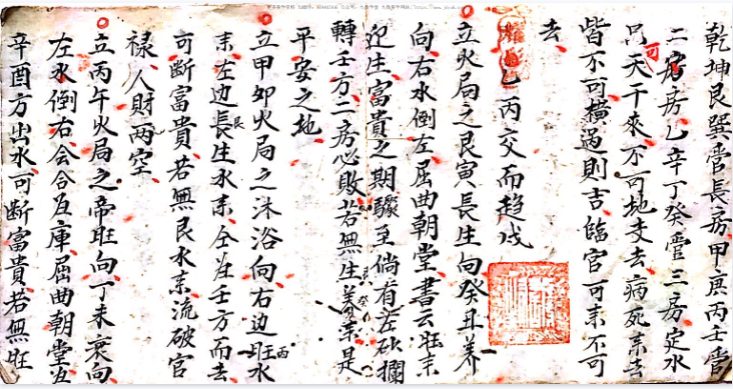 乾坤艮巽管長房甲庚丙壬管
二房房乙辛丁癸管三房定水
天干來不可地支去病死來去
皆不可撞過則吉臨官可來不可
去
乙丙交而趨戌
立火局之艮寅長生向癸丑養
向右水倒左屈曲朝堂書云旺來
迎生富貴之期驟至倘有左砂攔
轉壬方二房必敗若無生養來是
平安之地
立甲卯火局之沐浴向右边旺水
來左边長生水來仝壬方而去
可斷富貴若無艮水來流破官
祿人財兩空
立丙午火局之帝旺向丁未衰向
左水倒右会合庫屈曲朝堂
辛酉方出水可斷富貴若無旺